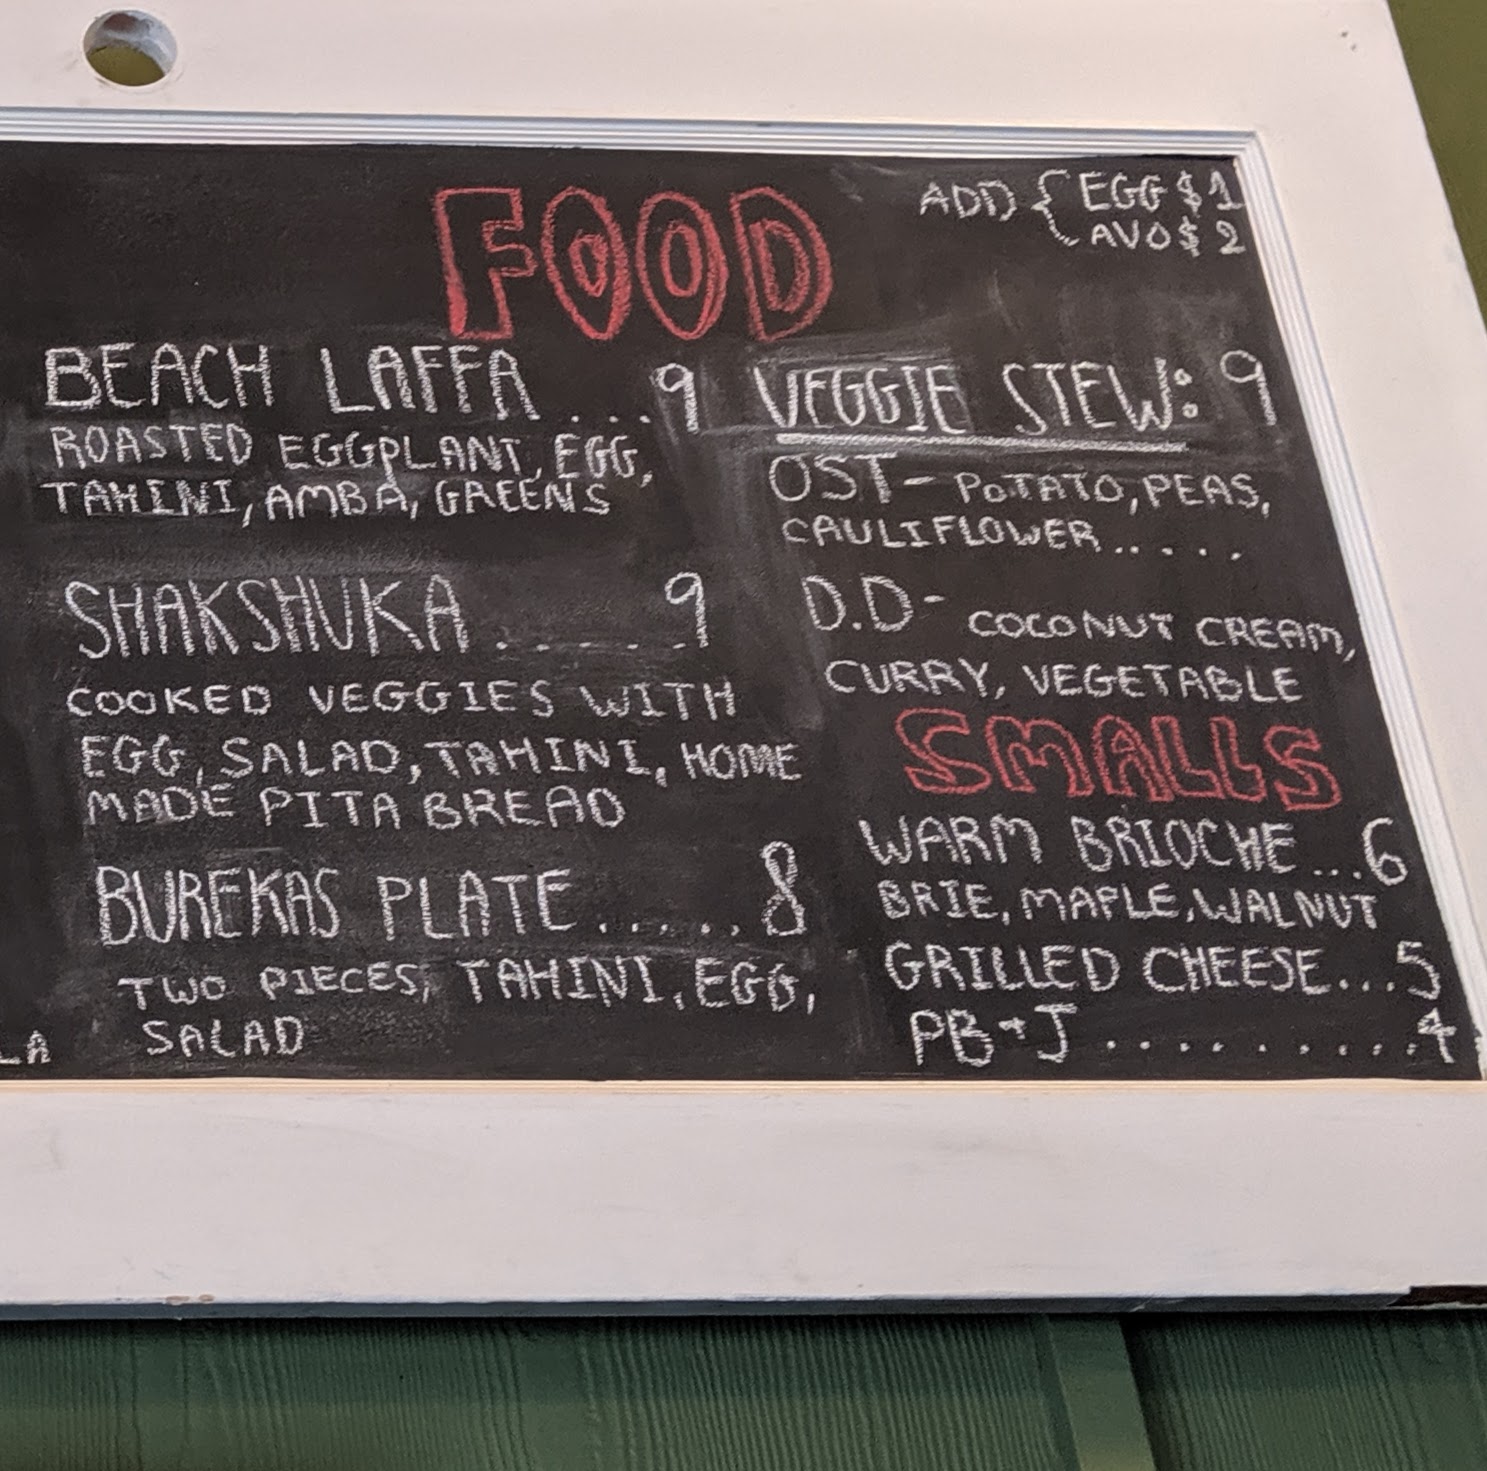 FOOD
ADD { EGG $1
AVO $2
BEACH LAFFA ....9
ROASTED EGGPLANT, EGG,
TAHINI, AMBA, GREENS
SHAKSHUKA......9
COOKED VEGGIES WITH
EGG, SALAD, TAHINI, HOME
MADE PITA BREAD
BUREKAS PLATE......8
TWO PIECES, TAHINI, EGG,
SALAD
LA
VEGGIE STEW: 9
OST- POTATO, PEAS,
CAULIFLOWER......
D.D- COCONUT CREAM,
CURRY, VEGETABLE
SMALLS
WARM BRIOCHE...6
BRIE, MAPLE, WALNUT
GRILLED CHEESE...5
PB+J..........4